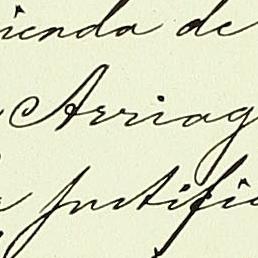 ienda de
Arriag
justifi